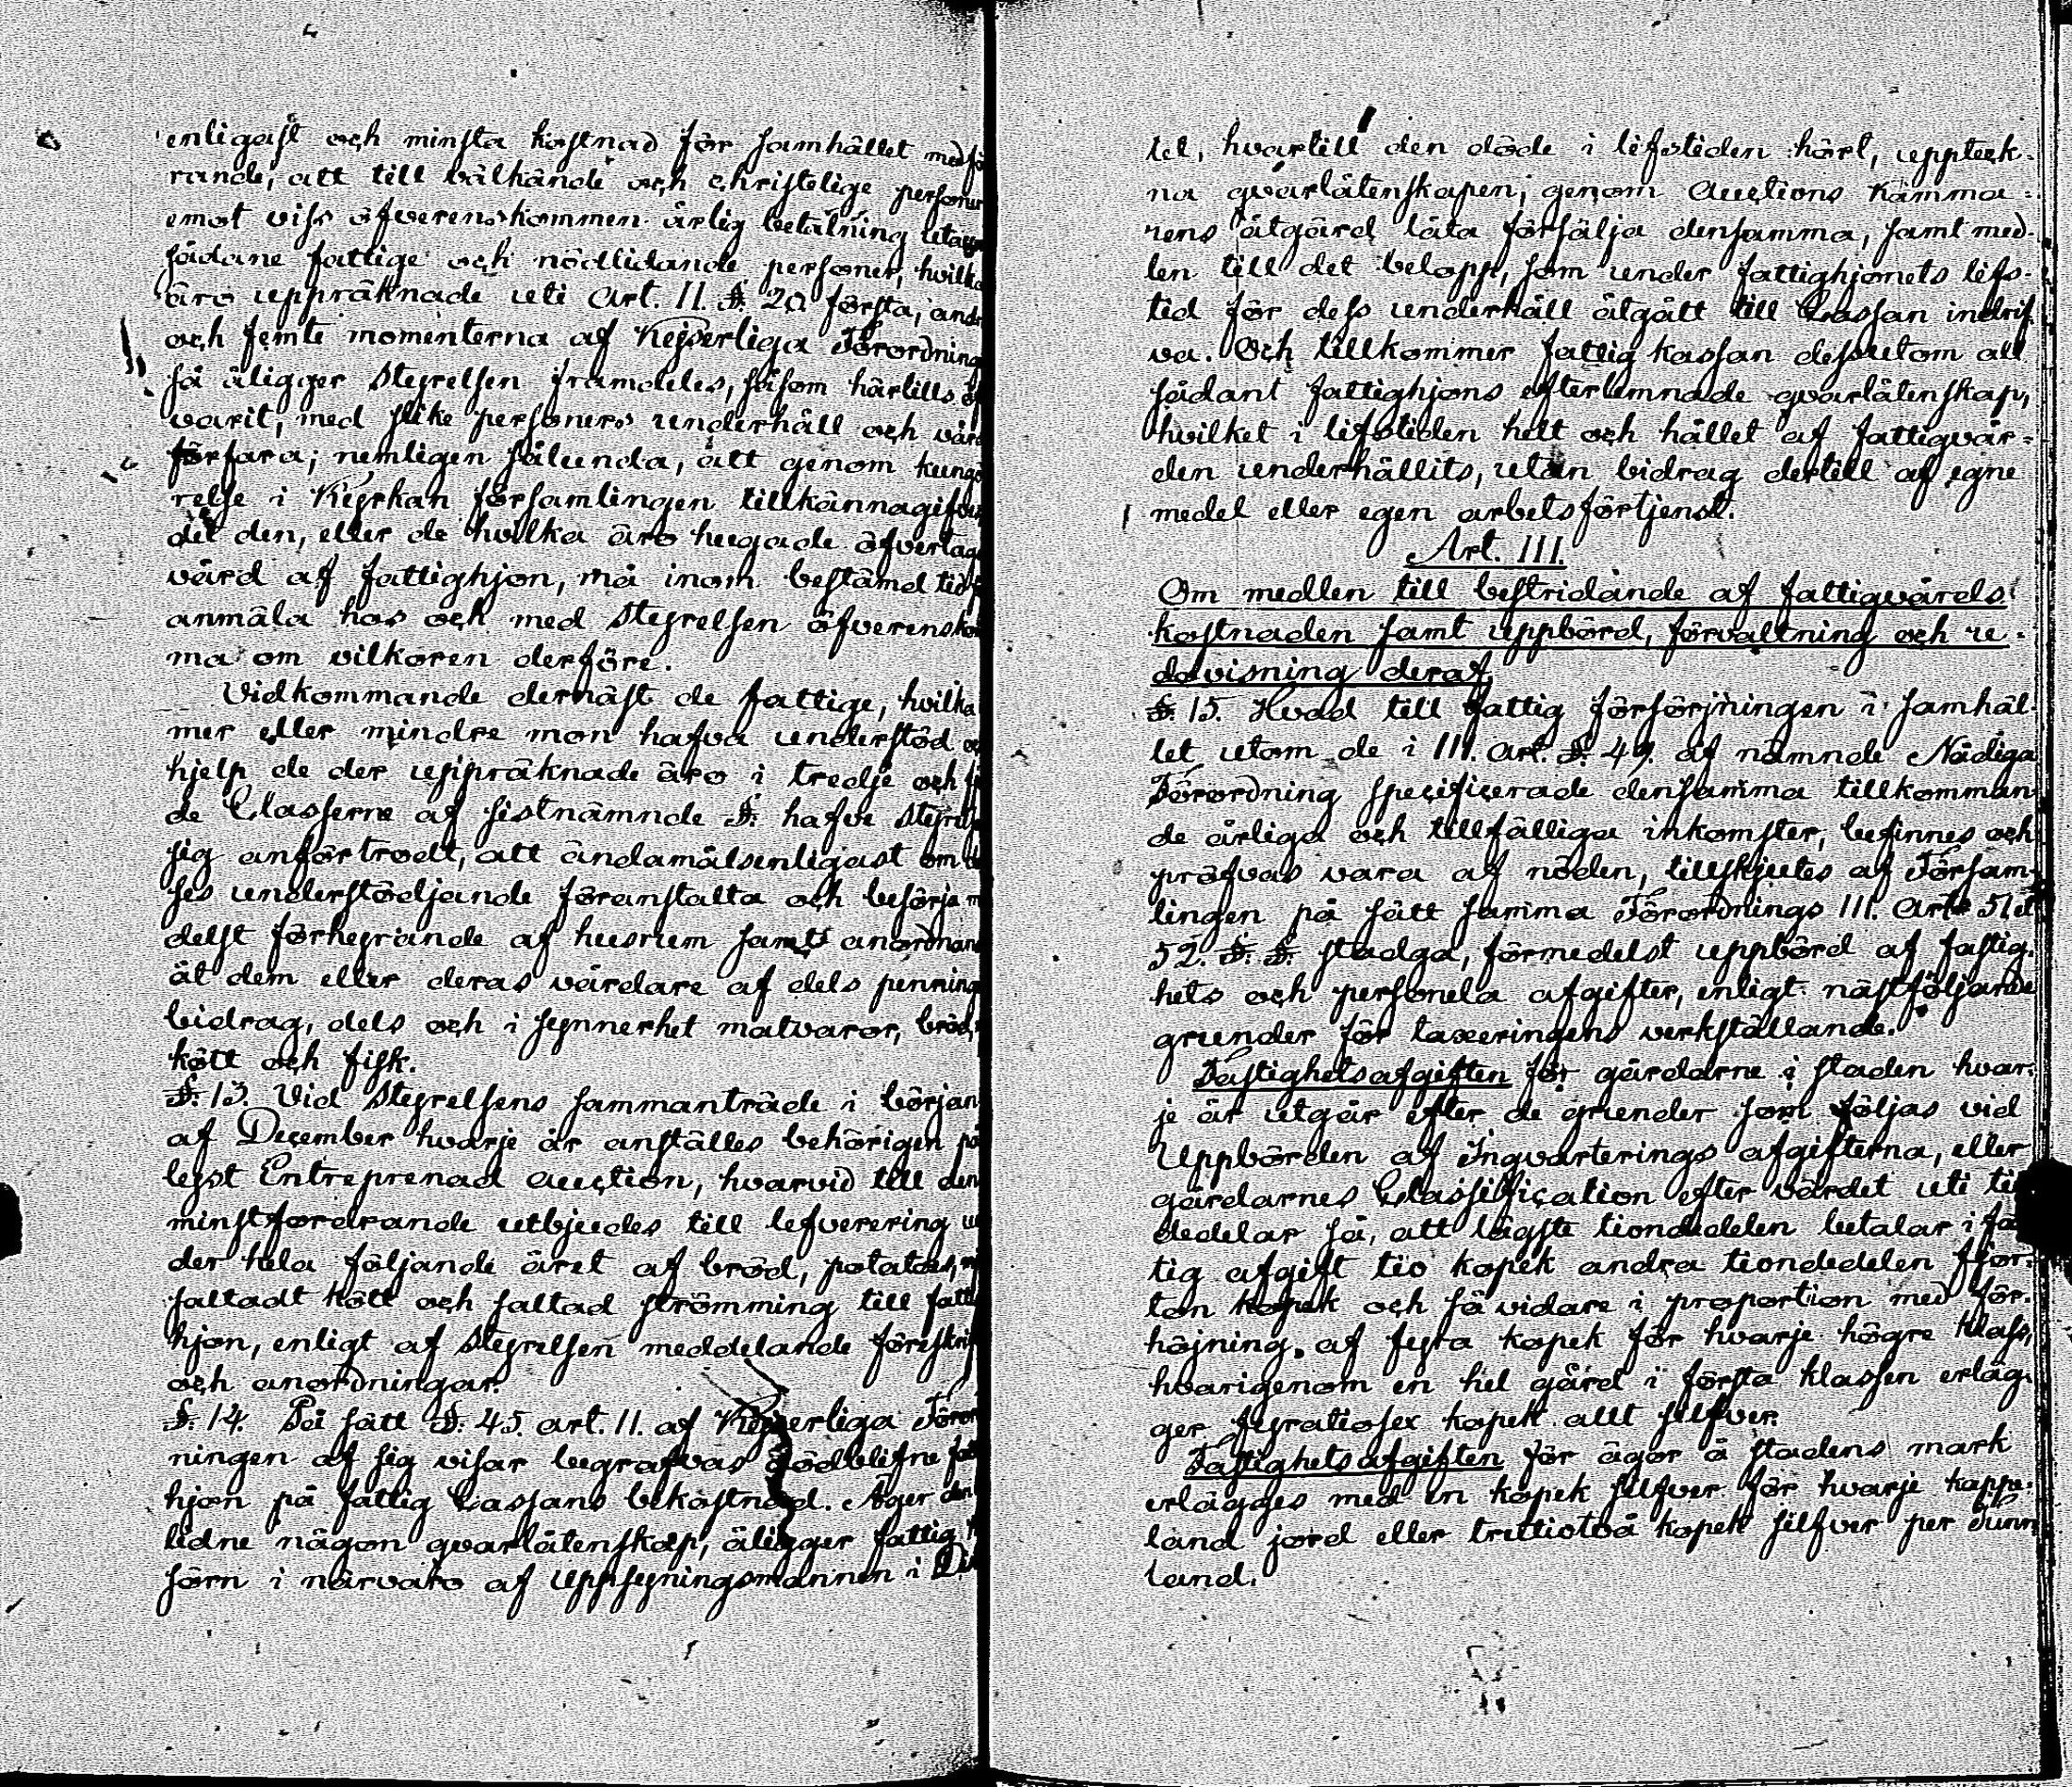 enligast och minsta kostnad för samhället medfö
rande, att till välkände och christelige personer
emot viss öfverenskommen årlig betalning uttaga
sådane fattige och nödlidande personer, hvilka
äro uppräknade uti Art. II. §. 20 första, andr
och femte momenterna af Kejserliga Förordning
så åligger Styrelsen framdeles, såsom härtills
varit, med slike personers underhåll och vård
förfara; nemligen sålunda, att genom kungö
relse i Kyrkan församlingen tillkännagifves
det den, eller de hvilka äro hugade öfvertaga
vård af fattighjon, må inom bestämd tid
anmäla hos och med Styrelsen öfverenskom
ma om vilkoren derföre.
Vidkommande dernäst de fattige, hvilka
mer eller mindre mon hafva understöd
hjelp de der uppräknade äro i tredje och
de Classerne af sistnämnde §. hafve Styrel
sig anförtrodt, att ändamålsenligast om
ses understödjande föranstalta och besörja
delst förhyrande af husrum samt anordnan
åt dem eller deras vårdare af dels penning
bidrag, dels och i synnerhet matvaror, bröd,
kött och fisk.
§. 13. Vid Styrelsens sammanträde i början
af December hvarje år anställes behörigen på
lyst Entreprenad auction, hvarvid till den
minstfordrande utbjudes till lefverering un
der hela följande året af bröd, potatoes,
saltadt kött och saltad strömming till fatt
hjon, enligt af Styrelsen meddelande föreskrif
och anordningar.
§. 14. På sätt §. 45. art. II. af Kejserliga Föror
ningen af sig visar begrafvas dödblifne fatt
hjon på fattig Cassans bekostnad. Äger den
lidne någon qvarlåtenskap, åligger fattig
förn i närvaro af Uppsyningsmannen i Di
tet, hvartill den döde i lifstiden hört, uppteck-
na qvarlåtenskapen, genom Auctions Kamma=
rens åtgärd låta försälja densamma, samt med-
len till det belopp, som under fattighjonets lifs-
tid för dess underhåll åtgått till Cassan indrif
va. Och tillkommer fattig kassan dessutom all
sådant fattighjons efterlemnade qvarlåtenskap,
hvilket i lifstiden helt och hållet af fattigvår=
den underhållits, utan bidrag dertill af egne
medel eller egen arbetsförtjenst.
Art. III.
Om medlen till bestridande af fattigvårds
kostnaden samt uppbörd, förvaltning och re-
dovisning deraf.
§. 15. Hvad till fattig försörjningen i samhäl-
let utom de i III. art. §. 49. af nämnde Nådiga
Förordning specificerade densamma tillkomman
de årliga och tillfälliga inkomster, befinnes och
pröfvas vara af nöden, tillskjutes af Försam-
lingen på sätt samma Förordnings III. Art. 51 et
52. §. §. stadga, förmedelst uppbörd af fastig-
hets och personela afgifter, enligt nästföljande
grunder för taxeringens verkställande.
Fastighetsafgiften för gårdarne i staden hvar-
je år utgår efter de grunder som följas vid
Uppbörden af Inqvarterings afgifterna, eller
gårdarnes Classification efter värdet uti ti
dedelar så, att lägste tiondedelen betalar i fa
tig afgift tio kopek andra tiondedelen fjor-
ton kopek och så vidare i proportion med för-
höjning. af fyra kopek för hvarje högre klass,
hvarigenom en hel gård i första klassen erläg-
ger fyratiosex kopek allt silfver.
Fastighetsafgiften för ägor å stadens mark
erlägges med en kopek silfver för hvarje kappe-
land jord eller trettiotvå kopek silfver per Tunn
land.